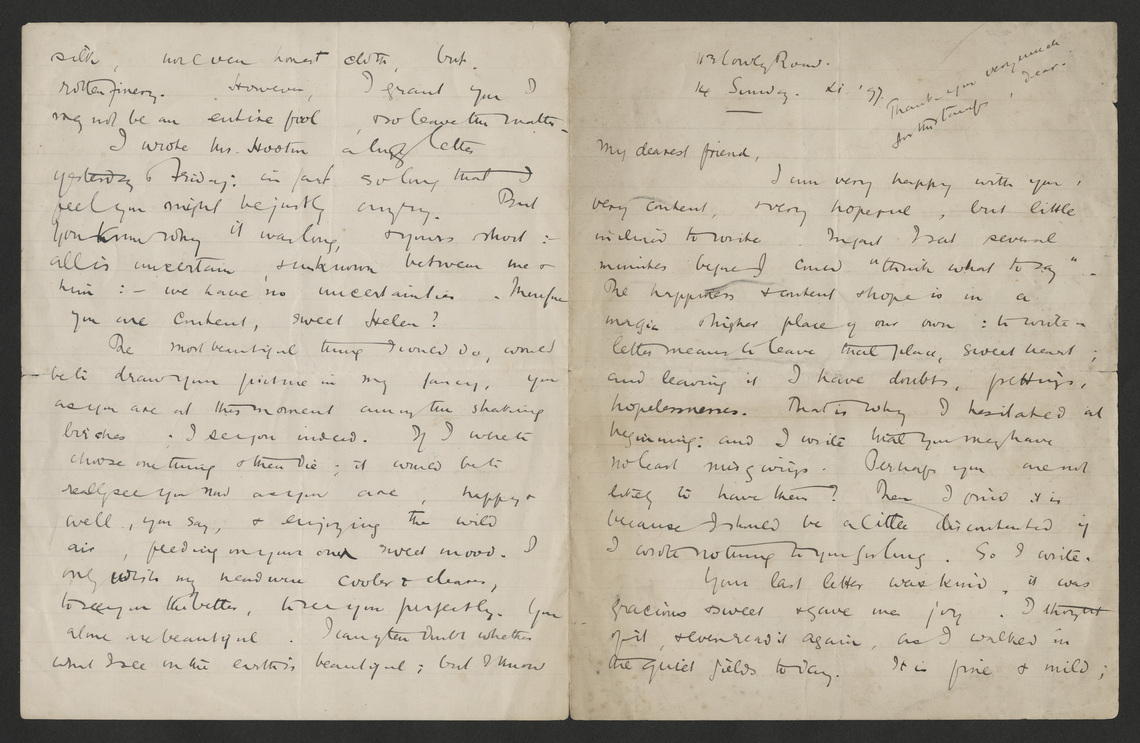 silk, nor even honest cloth, but
rotten finery. However, I grant you I
may not be an entire fool, & so leave the matter.
I wrote Mr. Hooton a huge letter
yesterday & Friday: in fact so long that I
feel you might be justly angry. But
You know why it was long, & yours short :-
all is uncertain, & unknown between me &
him :- we have no uncertainties. Therefore
you are content, sweet Helen?
The most beautiful thing I could do, would
be to draw your picture in my fancy, you
as you are at this moment among the shaking
birches. I see you indeed. If I were to
choose one thing & then die; it would be to
really see you now as you are, happy &
well, you say, & enjoying the wild
air, feeding on your own sweet mood. I
only wish my head were cooler & clearer,
to see you the better, to see you perfectly. You
alone are beautiful. I can often doubt whether
what I see on the earth is beautiful; but I know
113 Cowley Road.
14 Sunday. xi. '97.
Thank you very much
for the , dear.
My dearest friend,
I am very happy with you,
very content, & very hopeful, but little
inclined to write. In fact I sat several
minutes before I could "think what to say".
The happiness & content & hope is in a
magic & higher place of our own: to write a
letter means to leave that place, sweet heart;
and leaving it I have doubts, frettings,
hopelessnesses. That is why I hesitated at
beginning: and I write that you may have
no least misgivings. Perhaps you are not
likely to have them? Then I find it is
because I should be a little discontented if
I wrote nothing to you for long. So I write.
Your last letter was kind, it was
gracious & sweet & gave me joy. I thought
of it, & even read it again, as I walked in
the quiet fields today. It is fine & mild;